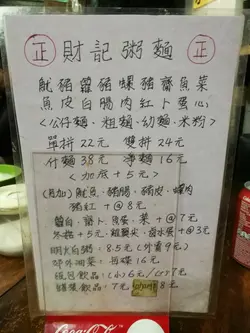 正 財記粥麵 正
魷豬蘿豬螺豬齋魚菜
魚皮白腸肉紅卜蛋心
<公仔麵、粗麵、幼麵、米粉>
單拼 22元 雙拼 24元
什麵 38元 淨麵 16元
<加底+5元>
(另加)魷魚、豬腸、豬皮、螺肉
豬紅 + @ 8元
蘿卜、魚蛋、菜 + @ 7元
+5元、滷水蛋 + @ 3元
明火白粥: 8.5元 (外賣9元)
郊外油菜: 每碟 16元
飲品: (小) 6元/(大) 7元
罐裝飲品: 7元 8元
Coca-Cola